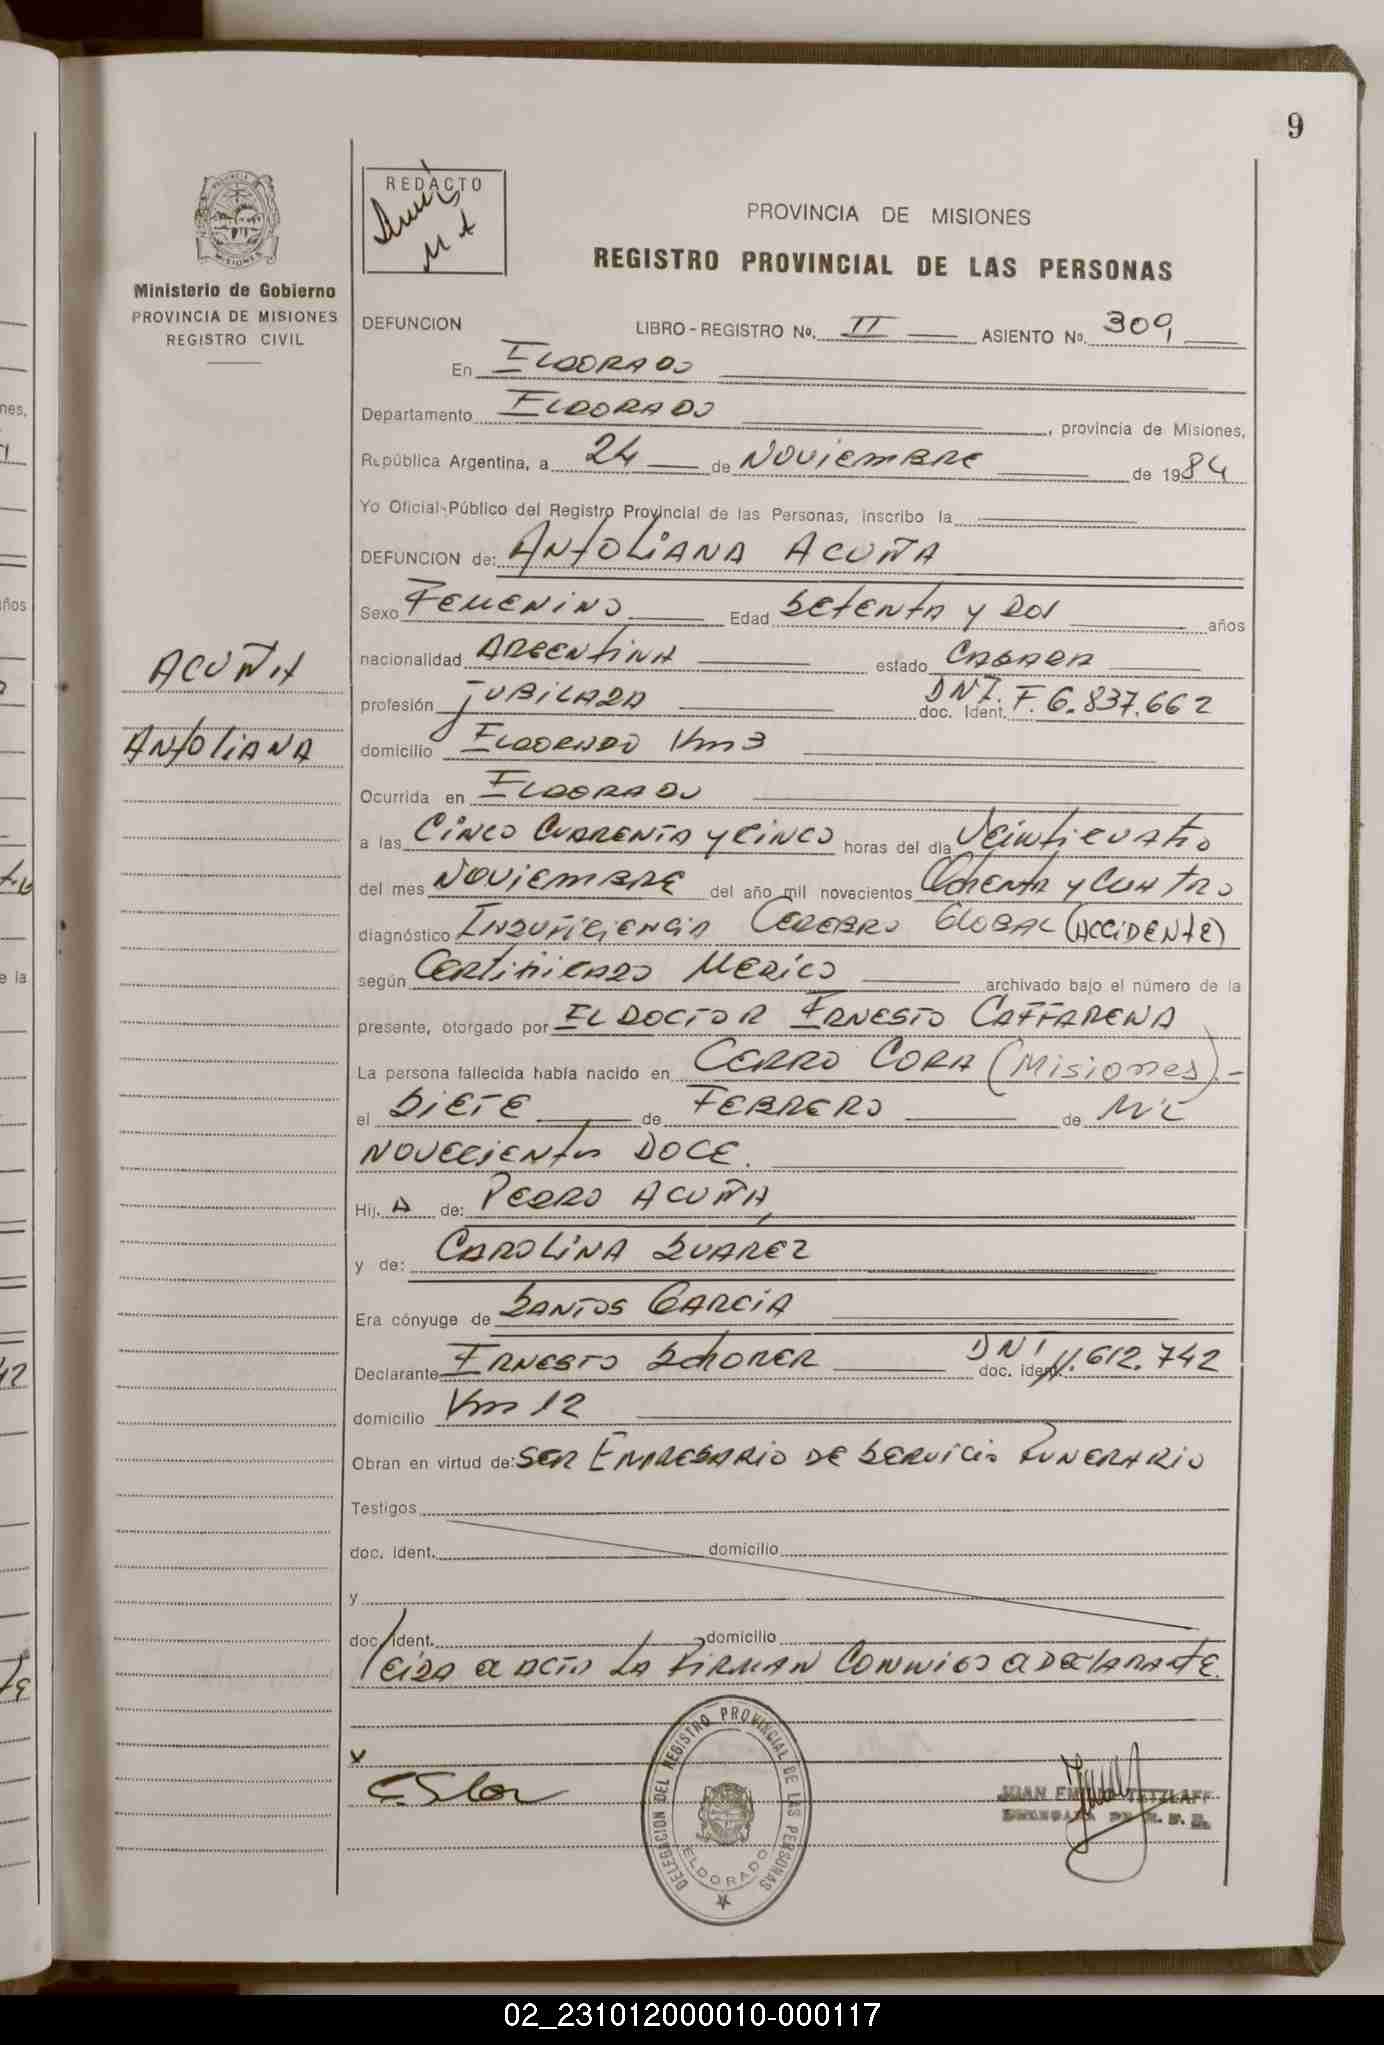 9
PROVINCIA DE MISIONES
Ministerio de Gobierno
PROVINCIA DE MISIONES
REGISTRO CIVIL
REDACTO
PROVINCIA DE MISIONES
REGISTRO PROVINCIAL DE LAS PERSONAS
DEFUNCION LIBRO - REGISTRO Nº. II ASIENTO Nº. 309
En ELDORADO
Departamento ELDORADO, provincia de Misiones,
República Argentina, a 24 de NOVIEMBRE de 1984
Yo Oficial Público del Registro Provincial de las Personas, inscribo la
DEFUNCION de: ANTOLIANA ACUÑA
Sexo FEMENINO Edad SETENTA Y DOS años
ACUÑA
ANTOLIANA
nacionalidad ARGENTINA estado CASADA
profesión JUBILADA doc. Ident. DNI. F. 6.837.662
domicilio ELDORADO Km 3
Ocurrida en ELDORADO
a las CINCO CUARENTA Y CINCO horas del día VEINTICUATRO
del mes NOVIEMBRE del año mil novecientos OCHENTA Y CUATRO
diagnóstico INSUFICIENCIA CEREBRO GLOBAL (ACCIDENTE)
según CERTIFICADO MEDICO archivado bajo el número de la
presente, otorgado por EL DOCTOR ERNESTO CAFFARENA
La persona fallecida había nacido en CERRO CORA (Misiones).-
el SIETE de FEBRERO de MIL
NOVECIENTOS DOCE.
Hij. A de: PEDRO ACUÑA,
y de: CAROLINA SUAREZ
Era cónyuge de SANTOS GARCIA
Declarante ERNESTO SCHORER doc. ident. DNI 11.612.742
domicilio Km 12
Obran en virtud de: SER EMPRESARIO DE SERVICIO FUNERARIO
Testigos
doc. ident. domicilio
y
doc. ident. domicilio
LEIDA EL ACTA LA FIRMAN CONMIGO EL DECLARANTE.
x
DELEGACION DEL REGISTRO PROVINCIAL DE LAS PERSONAS
ELDORADO
JUAN EMILIO TETZLAFF
02_231012000010-000117